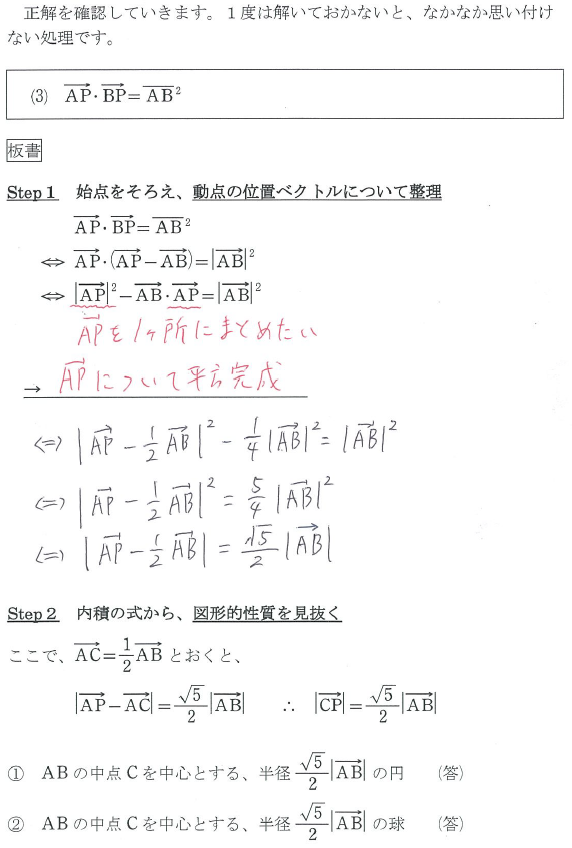 正解を確認していきます。１度は解いておかないと、なかなか思い付け
ない処理です。
(3) $\overrightarrow{AP}\cdot\overrightarrow{BP}=\overline{AB}^2$
板書
Step１ 始点をそろえ、動点の位置ベクトルについて整理
$\overrightarrow{AP}\cdot\overrightarrow{BP}=\overline{AB}^2$
$\Leftrightarrow \overrightarrow{AP}\cdot(\overrightarrow{AP}-\overrightarrow{AB})=|\overrightarrow{AB}|^2$
$\Leftrightarrow |\overrightarrow{AP}|^2-\overrightarrow{AB}\cdot\overrightarrow{AP}=|\overrightarrow{AB}|^2$
$\overrightarrow{AP}$を1ヶ所にまとめたい
→ $\overrightarrow{AP}$について平方完成
$\Leftrightarrow |\overrightarrow{AP}-\frac{1}{2}\overrightarrow{AB}|^2-\frac{1}{4}|\overrightarrow{AB}|^2=|\overrightarrow{AB}|^2$
$\Leftrightarrow |\overrightarrow{AP}-\frac{1}{2}\overrightarrow{AB}|^2=\frac{5}{4}|\overrightarrow{AB}|^2$
$\Leftrightarrow |\overrightarrow{AP}-\frac{1}{2}\overrightarrow{AB}|=\frac{\sqrt{5}}{2}|\overrightarrow{AB}|$
Step２ 内積の式から、図形的性質を見抜く
ここで、$\overrightarrow{AC}=\frac{1}{2}\overrightarrow{AB}$とおくと、
$|\overrightarrow{AP}-\overrightarrow{AC}|=\frac{\sqrt{5}}{2}|\overrightarrow{AB}|$ ∴ $|\overrightarrow{CP}|=\frac{\sqrt{5}}{2}|\overrightarrow{AB}|$
① ABの中点Cを中心とする、半径$\frac{\sqrt{5}}{2}|\overrightarrow{AB}|$の円 （答）
② ABの中点Cを中心とする、半径$\frac{\sqrt{5}}{2}|\overrightarrow{AB}|$の球 （答）